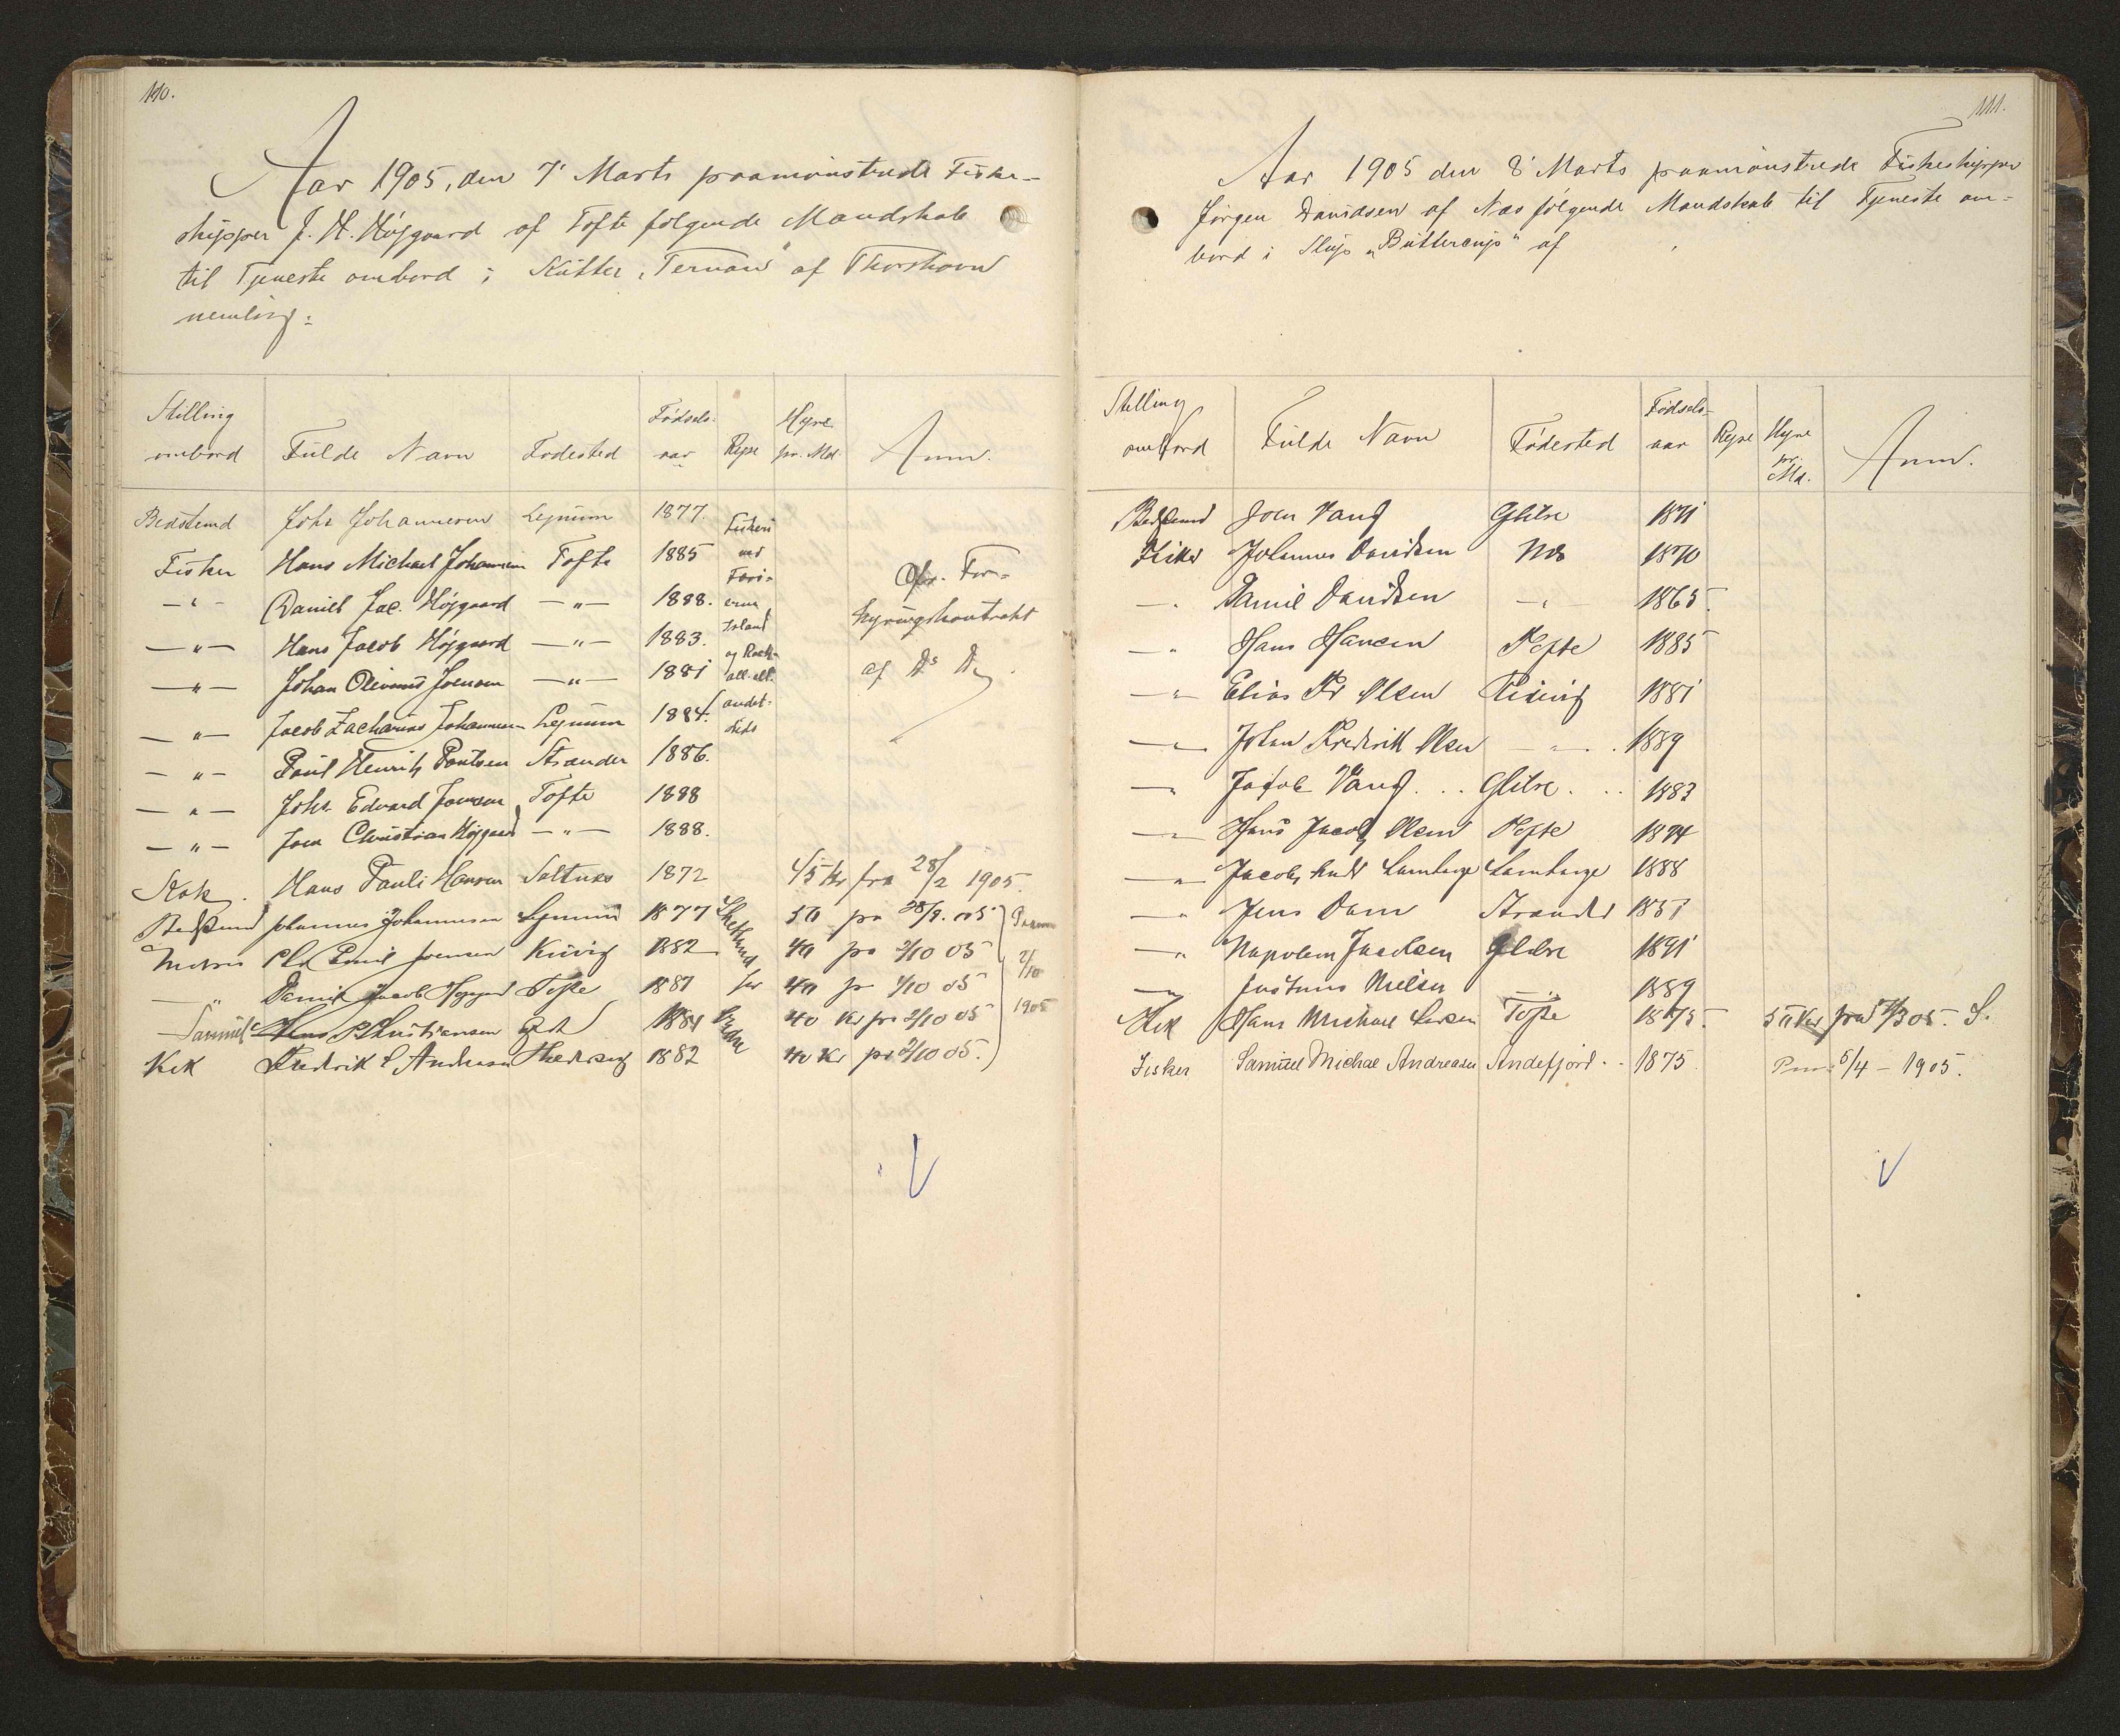 110.
Aar 1905, den 7' Marts paamønstrede Fiske-
skipper J. H. Højgaard af Tofte følgende Mandskab
til Tjeneste ombord i Kutter "Ternen" af Thorshavn
nemlig:
Stilling ombord Fulde Navn Fødested Fødsels-aar Rejse Hyre pr. Md. Anm.
Bedstemd Johs Johannesen Lejnum 1877. Fiskeri
Fisker Hans Michael Johannesen Tofte 1885 ved
—"— Daniel Jac. Højgaard —"— 1888. Færø- Før-
—"— Hans Jacob Højgaard —"— 1883. erne, Island hyringskontrakt
—"— Johan Olivinus Joensen —"— 1881 og Rock-all all. af
—"— Jacob Zacharias Johannesen Lejnum 1884. andet-
—"— Poul Henrik Poulsen Strænder 1886. steds
—"— Johs. Edvard Joensen Tofte 1888
—"— Joen Christian Højgaard —"— 1888.
Kok. Hans Pauli Hansen Saltnæs 1872 45 Kr fra 28/2 1905.
Bedstemd Johannes Johannesen Lejnum 1877 Shetland 50 fra 28/9. 05
Poul Joensen Kuivig 1882 40 fra 2/10 05 2/10
—"— Daniel Jacob Højgaard Tofte 1887 40 fr 1/10 05 1905
Samuel Hans P Christiansen 1884 40 Kr fra 2/10 05
Kok Fredrik Andreasen 1882 40 Kr fra 2/10 05.
111.
Aar 1905 den 8' Marts paamønstrede Fiskeskipper
Jørgen Davidsen af Næs følgende Mandskab til Tjeneste om-
bord i Slup "Buttercup" af
Stilling ombord Fulde Navn Fødested Fødsels-aar Rejse Hyre pr. Md. Anm.
Bedstemd Joen Vang Glibre 1871
Fisker Johannes Davidsen Næs 1870
—"— Daniel Davidsen —"— 1865.
—"— Hans Hansen Tofte 1885
—"— Elias Fr Olsen 1881
—"— Johan Fredrik Olsen —"— 1889
—"— Jacob Vang Glibre 1883
—"— Hans Jacob Olsen Tofte 1874
—"— Jacob Lamhauge Lamhauge 1888
—"— Jens Dam Strænder 1851
—"— Napoleon Jacobsen Glibre 1891
—"— Justinus Nielsen —"— 1889
Kok Hans Michael Larsen Tofte 1875. 50 Kr fra 05. S.
Fisker Samuel Michael Andreasen Andefjord 1875. Pm. 5/4 - 1905.